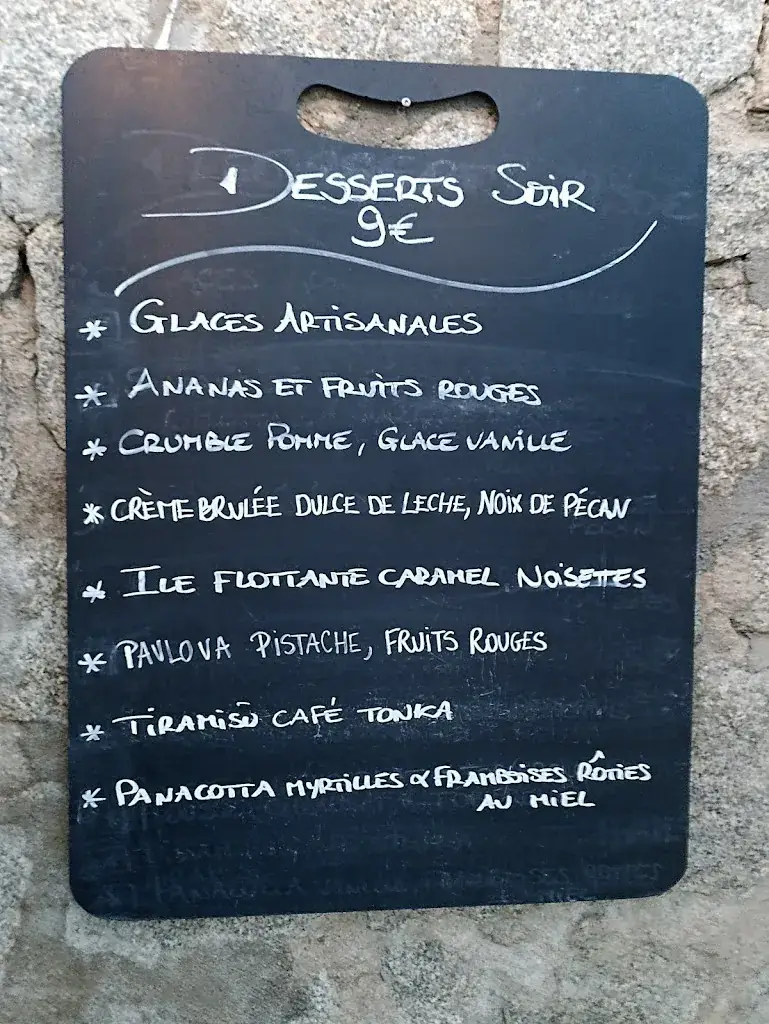 DESSERTS SOIR
9€
* GLACES ARTISANALES
* ANANAS ET FRUITS ROUGES
* CRUMBLE POMME, GLACE VANILLE
* CRÈME BRULÉE DULCE DE LECHE, NOIX DE PÉCAN
* ILE FLOTTANTE CARAMEL NOISETTES
* PAVLOVA PISTACHE, FRUITS ROUGES
* TIRAMISÙ CAFÉ TONKA
* PANACOTTA MYRTILLES & FRAMBOISES RÔTIES
AU MIEL